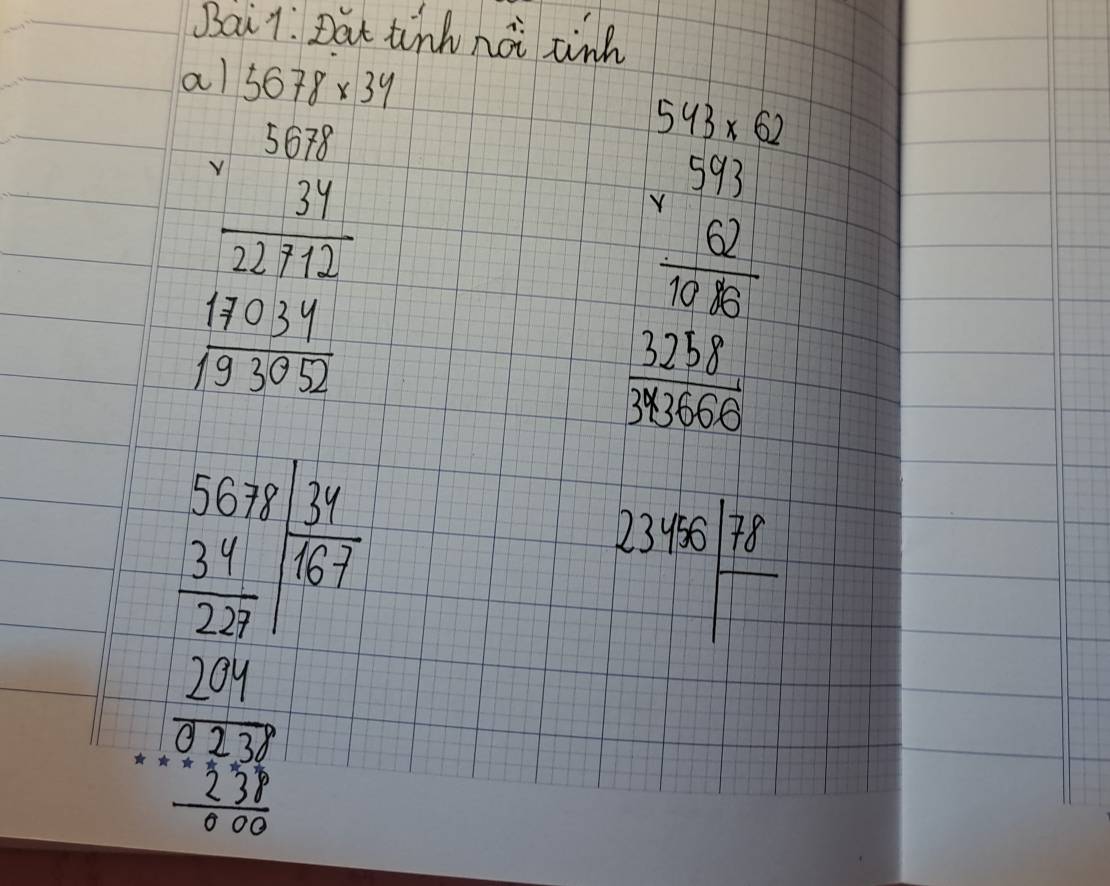 Bài 1: Đặt tính rồi tính
a) 5678 x 34
5678
x
34
22712
17034
193052
543 x 62
543
x
62
1086
3258
343666
5678 34
34 167
227
204
0238
238
000
23456 78